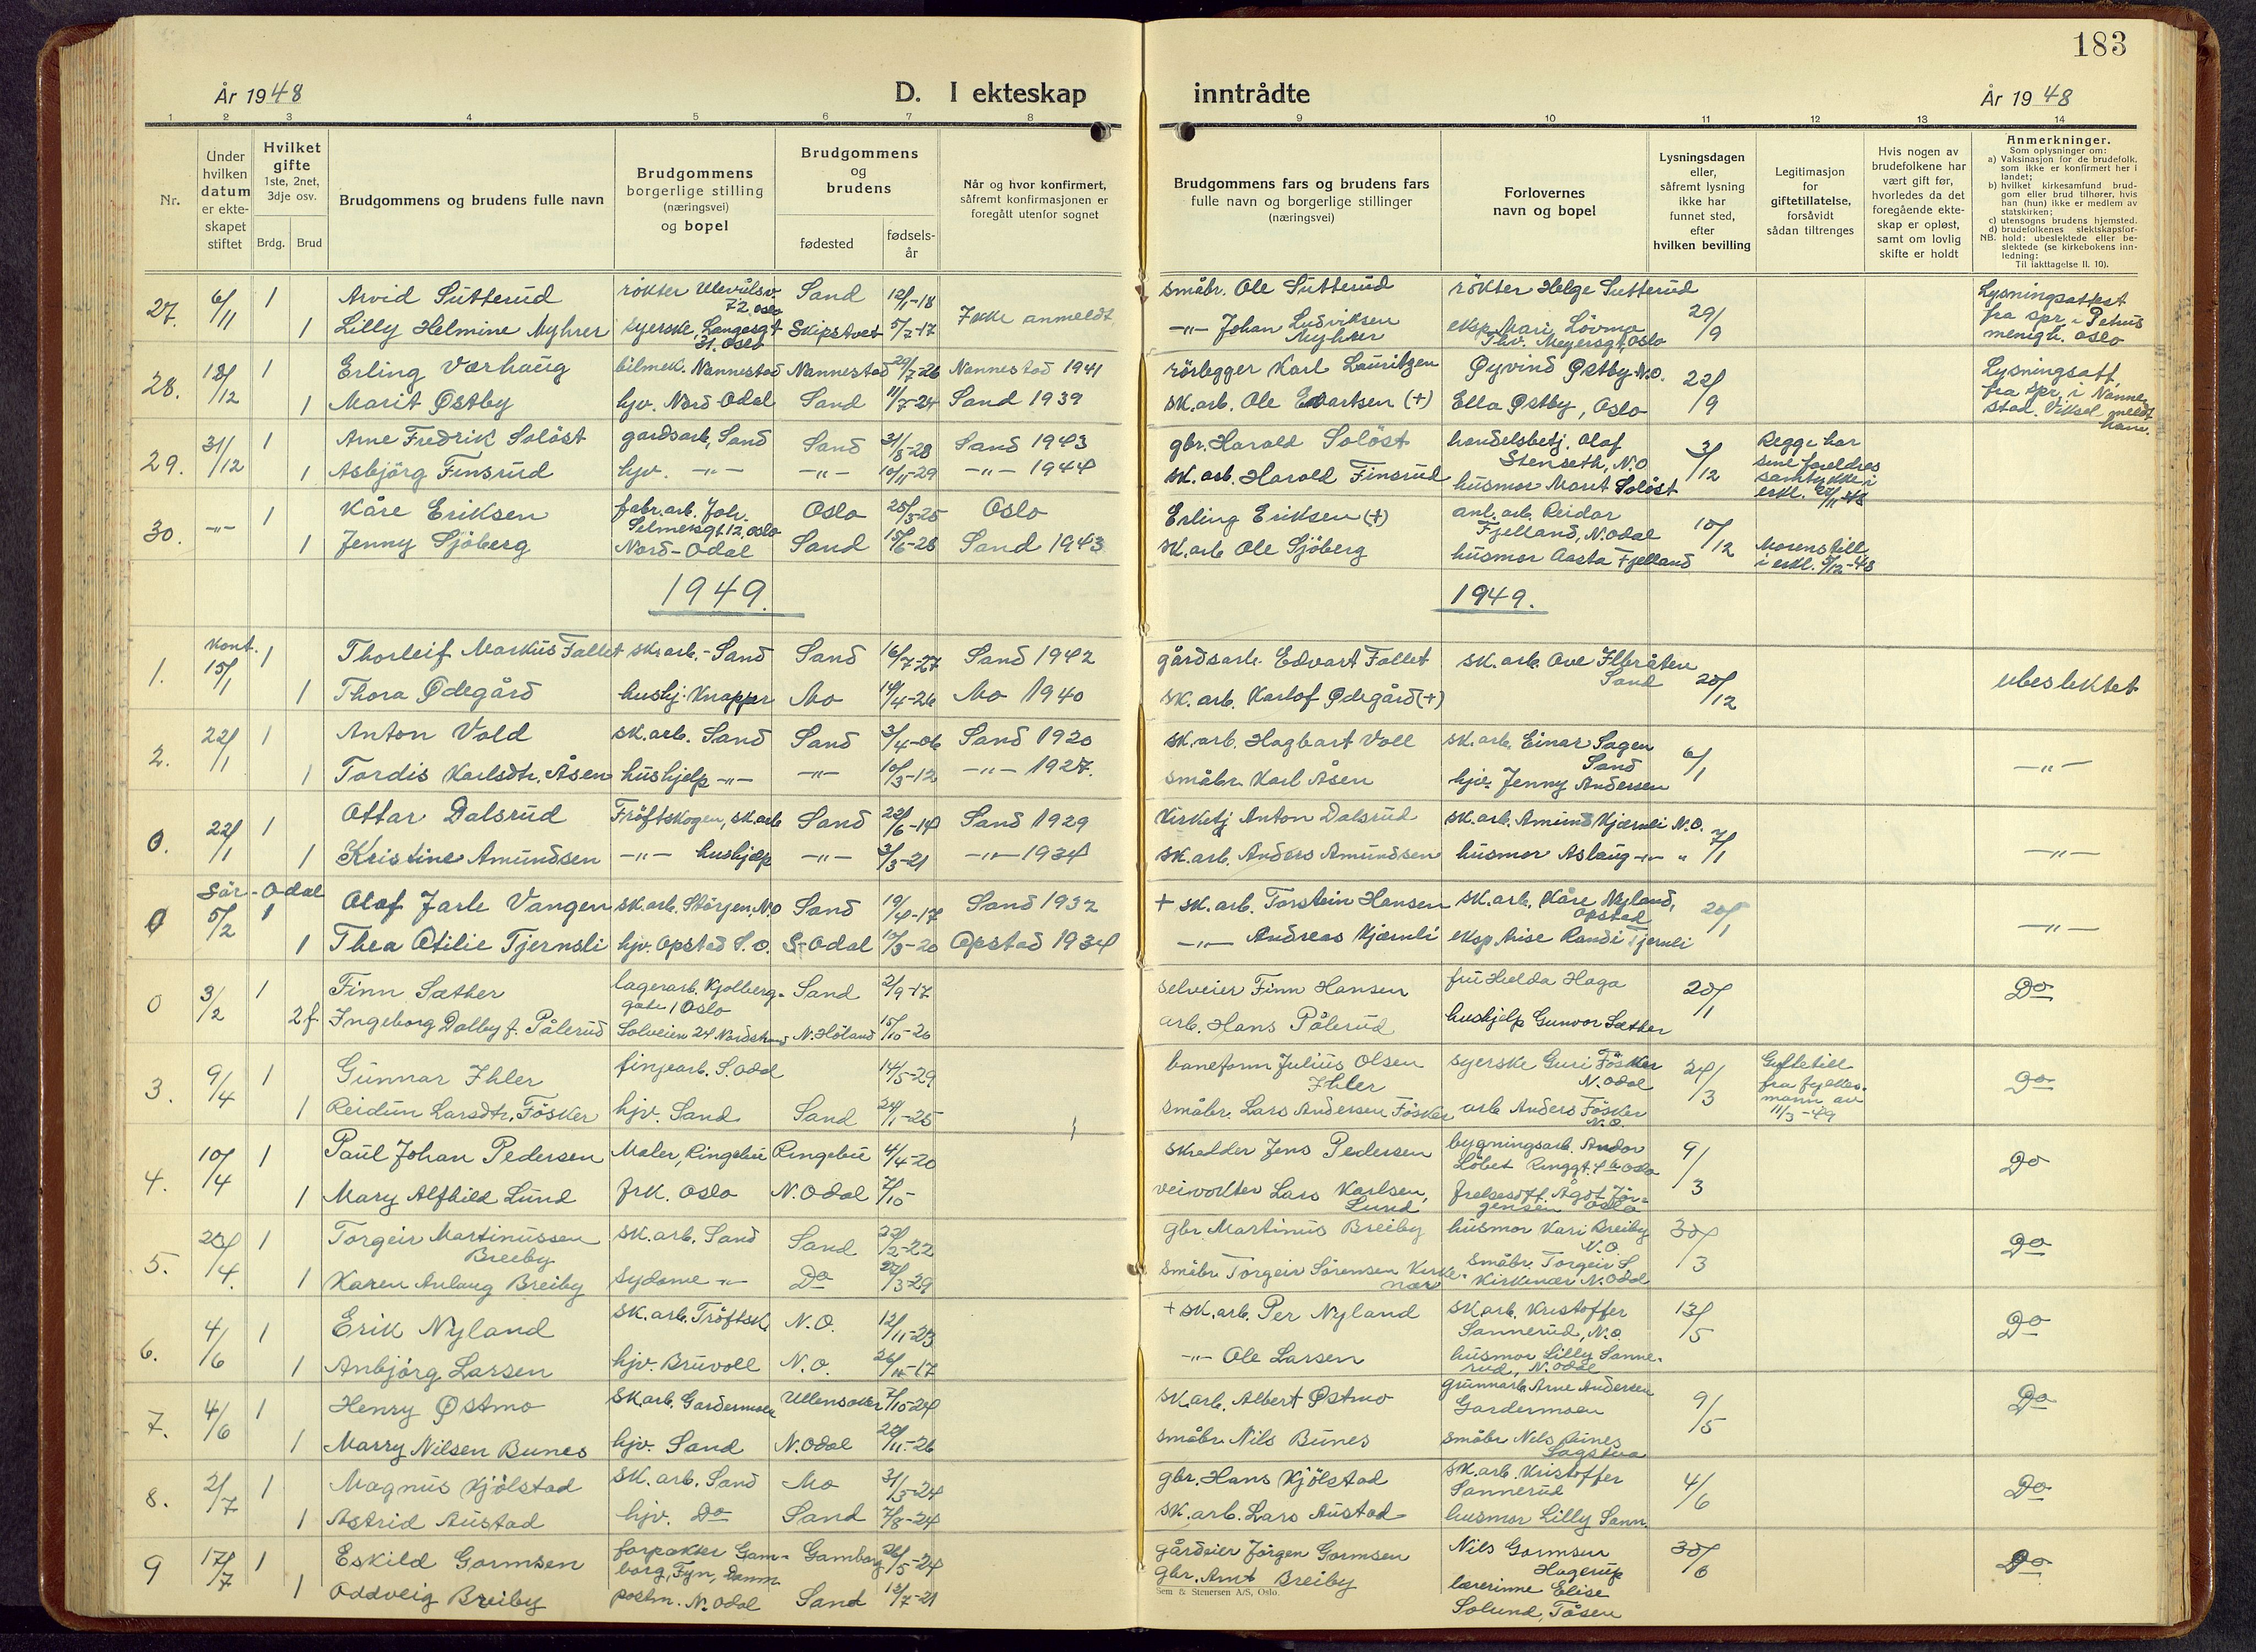 183
År 1948
D. I ekteskap inntrådte
År 1948
1 2 3 4 5 6 7 8 9 10 11 12 13 14
Nr.
Under
hvilken
datum
er ekte-
skapet
stiftet
Hvilket
gifte
1ste, 2net,
3dje osv.
Brdg. Brud
Brudgommens og brudens fulle navn
Brudgommens
borgerlige stilling
(næringsvei)
og bopel
Brudgommens
og
brudens
fødested
fødsels-
år
Når og hvor konfirmert,
såfremt konfirmasjonen er
foregått utenfor sognet
Brudgommens fars og brudens fars
fulle navn og borgerlige stillinger
(næringsvei)
Forlovernes
navn og bopel
Lysningsdagen
eller,
såfremt lysning
ikke har
funnet sted,
efter
hvilken bevilling
Legitimasjon
for
giftetillatelse,
forsåvidt
sådan tiltrenges
Hvis nogen av
brudefolkene har
vært gift før,
hvorledes da det
foregående ekte-
skap er opløst,
samt om lovlig
skifte er holdt
Anmerkninger.
Som oplysninger om:
a) Vaksinasjon for de brudefolk,
som ikke er konfirmert her i
landet;
b) hvilket kirkesamfund brud-
gom eller brud tilhører, hvis
han (hun) ikke er medlem av
statskirken;
c) utensogns brudens hjemsted.
d) brudefolkenes slektskapsfor-
hold: ubeslektede eller be-
slektede (se kirkebokens inn-
ledning:
NB.
Til iakttagelse II. 10).
27. 6/11 1 Arvid Sutterud røkter Ulevålsv. 72, Oslo Sand 12/1-18 Ikke anmeldt småbr. Ole Sutterud røkter Helge Sutterud 29/9 Lysningsattest
1 Lilly Helmine Myhrer syerske, Langesgt 31. Oslo Skiptvet 5/7-17 -"- Johan Ludviksen Myhrer eksp. Mari Lövmo Thv. Meyersgt, Oslo fra spr. i Petrus menigh. Oslo
28. 18/12 1 Erling Værhaug bilmek. Nannestad Nannestad 29/7-26 Nannestad 1941 rörlegger Karl Lauritzen Øyvind Østby N.O. 22/9 Lysningsatt.
1 Marit Østby hjv. Nord Odal Sand 11/7-24 Sand 1939 sk.arb. Ole Evartsen (+) Ella Østby, Oslo fra spr. i Nannestad. Viksel meldt
29. 31/12 1 Arne Fredrik Solöst gardsarb, Sand Sand 31/8-28 Sand 1943 gbr. Harald Solöst handelsbetj. Olaf Stenseth, N.O 3/12 Begge har
1 Asbjörg Finsrud hjv. -"- -"- 10/11-29 -"- 1944 sk.arb. Harald Finsrud husmor Marit Solöst sine foreldres samtykke i erkl.
30. -"- 1 Kåre Eriksen fabr.arb. Joh. Selmersgt 12, Oslo Oslo 25/5-25 Oslo Erling Eriksen (+) anl. arb. Reidar Fjelland, N.Odal 10/12
1 Jenny Sjöberg Nord-Odal Sand 15/6-28 Sand 1943 sk.arb Ole Sjöberg husmor Aasta Fjelland Morens till. i erkl. 5/12-48
1949. 1949.
1. kont. 15/1 1 Thorleif Markus Fallet sk.arb.-Sand Sand 16/7-27 Sand 1942 gårdsarb. Edvart Fallet sk.arb. Ove Ilbråten Sand 20/12 ubeslektet
1 Thora Ødegård hushj. Knapper Mo 14/4-26 Mo 1940 sk.arb. Karlof Ødegård (+)
2. 22/1 1 Anton Vold sk.arb. Sand Sand 3/4-06 Sand 1920 sk.arb. Hagbart Voll sk.arb. Einar Sagen Sand 6/1 -"-
1 Tordis Karlsdtr. Åsen hushjelp -"- -"- 10/3-12 -"- 1927. småbr. Karl Åsen hjv. Jenny Andersen
0. 22/1 1 Ottar Dalsrud Tröftskogen, sk.arb Sand 22/6-14 Sand 1929 Kirketj Anton Dalsrud sk.arb. Amund Kjærnli N.O. 7/1 -"-
1 Kristine Amundsen -"- hushjelp -"- 3/3-21 -"- 1934 sk.arb. Anders Amundsen husmor Aslaug -"- "
0 Sör-Odal 5/2 1 Olaf Jarle Vangen sk.arb. Störjen, N.O Sand 19/4-17 Sand 1932 + sk.arb. Torstein Hansen sk.arb. Kåre Nyland, Opstad 20/1 -"-
1 Thea Otilie Tjernsli hjv. Opstad S.O. S-Odal 12/3-20 Opstad 1934 -"- Andreas Kjærnli eksp. Randi Tjernli
0 3/2 1 Finn Sæther lagerarb. Kjolberg-gate 1 Oslo Sand 2/9-17 selveier Finn Hansen fru Hulda Haga 20/1 Do
2 f. Ingeborg Dalby f. Pålerud Solveien 24 Nordstrand N.Höland 15/10-20 arb. Hans Pålerud hushjelp Gunvor Sæther
3. 9/4 1 Gunnar Ihler linjearb. S.Odal 14/5-29 baneform Julius Olsen Ihler syerske Guri Fösker N.Odal 24/3 Giftetill. Do
1 Reidun Larsdtr. Fösker hjv. Sand Sand 24/1-25 småbr. Lars Andersen Fösker arb Anders Fösker N.O. fra fylkesmann av 11/3-49
4. 10/4 1 Paul Johan Pedersen Maler, Ringebu Ringebu 4/4-20 skredder Jens Pedersen bygningsarb. Andor Löbet Ringgt. Oslo 9/3 Do
1 Mary Alfhild Lund frk. Oslo N.Odal 7/15 veivokter Lars Karlsen, Lund frelsesoff. Ågot Jörgensen Oslo
5. 20/4. 1 Torgeir Martinussen Breiby sk.arb. Sand Sand 22/2-22 gbr Martinus Breiby husmor Kari Breiby N.O. 30/3 Do
1 Karen Anlaug Breiby sydame -"- Do 27/3-29 småbr Torgeir Sörensen Kirkenær småbr. Torgeir S. Kirkenær N.Odal
6. 4/6 1 Erik Nyland sk.arb. Tröftsk. N.O. 12/11-23 + sk.arb. Per Nyland sk.arb. Kristoffer Sannerud, N.O. 13/5 Do
1 Anbjörg Larsen hjv. Bruvoll N.O. 26/10-17 -"- Ole Larsen husmor Lilly Sannerud, N.Odal
7. 4/6 1 Henry Østmo sk.arb. Gardermoen Ullensaker 7/10-24 sk.arb. Albert Østmo grunnarb. Arne Andersen Gardermoen 9/5 Do
1 Marry Nilsen Bunes hjv. Sand N.Odal 20/11-26 småbr. Nils Bunes småbr Nils Bunes Sagstua
8. 2/7 1 Magnus Kjölstad sk.arb. Sand Mo 31/5-24 gbr. Hans Kjölstad sk.arb. Kristoffer Sannerud 4/6 Do
1 Astrid Austad hjv. Do Sand 7/8-24 sk.arb. Lars Austad husmor Lilly Sann.
9 17/7 1 Eskild Gormsen forpakter Gamborg, Fyn, Danm. Gamborg 26/5-24 gårdeier Jörgen Gormsen Nils Gormsen Hagerup 30/6 Do
1 Oddveig Breiby postm. N.Odal Sand 13/7-21 gbr. Arnt Breiby lærerinne Elise Solund, Tåsen
Sem & Stenersen A/S, Oslo.